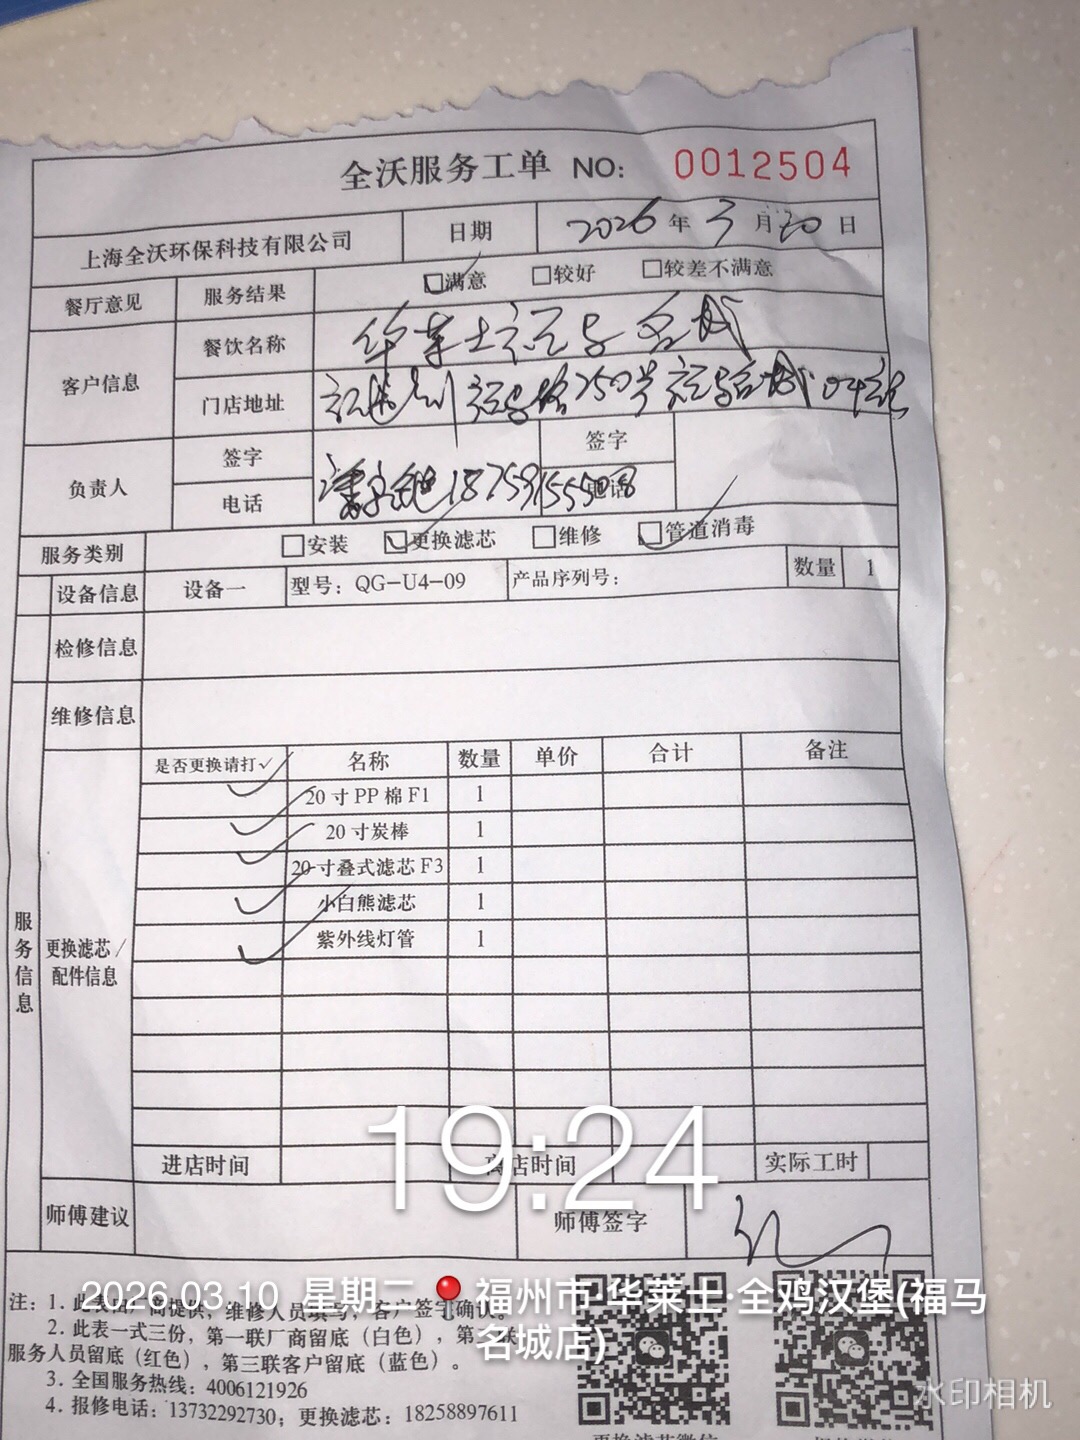 全沃服务工单 NO: 0012504
上海全沃环保科技有限公司 日期 2026年3月 日
餐厅意见 服务结果 □满意 □较好 □较差不满意
客户信息 餐饮名称 华莱士福马名城
门店地址 福马路750号福马名城
负责人 签字 签字
电话 电话
服务类别 □安装 □更换滤芯 □维修 □管道消毒
设备信息 设备一 型号：QG-U4-09 产品序列号： 数量 1
检修信息
维修信息
是否更换请打✓ 名称 数量 单价 合计 备注
✓ 20寸PP棉F1 1
✓ 20寸炭棒 1
✓ 20寸叠式滤芯F3 1
✓ 小白熊滤芯 1
✓ 紫外线灯管 1
服务信息
更换滤芯/
配件信息
进店时间 离店时间 实际工时
19:24
师傅建议 师傅签字
2026.03.10 星期二 福州市·华莱士·全鸡汉堡(福马
名城店)
注：1. 此表由厂商提供，维修人员填写，客户签字确认。
2. 此表一式三份，第一联厂商留底（白色），第二联
服务人员留底（红色），第三联客户留底（蓝色）。
3. 全国服务热线：4006121926
4. 报修电话：13732292730；更换滤芯：18258897611
水印相机